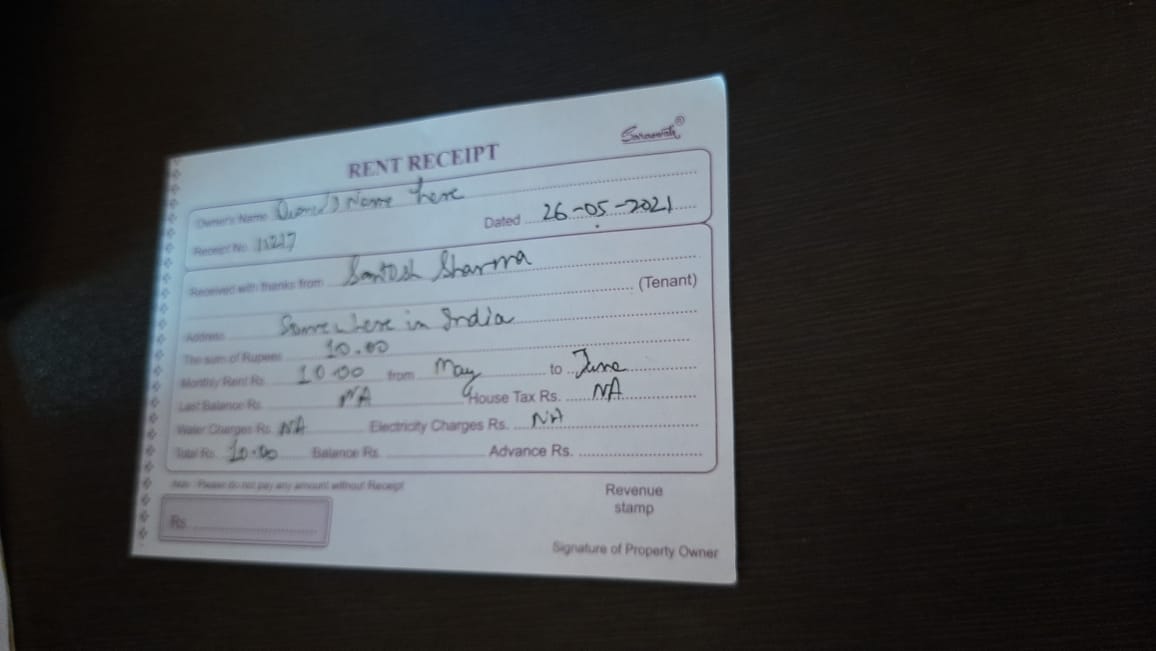 Saraswati®
RENT RECEIPT
Owner's Name Owner's Name here
Receipt No. Dated 26-05-2021
Received with thanks from Santosh Sharma
(Tenant)
Address Somewhere in India
The sum of Rupees 10.00
Monthly Rent Rs. 10.00 from May to June
Last Balance Rs. NA House Tax Rs. NA
Water Charges Rs. NA Electricity Charges Rs. NA
Total Rs. 10.00 Balance Rs. Advance Rs.
Note : Please do not pay any amount without Receipt
Revenue
stamp
Rs.
Signature of Property Owner